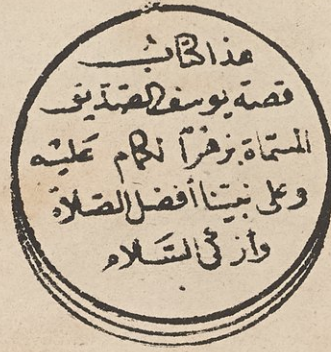 هذا كتابُ
قصة يوسف الصّديق
المسَمّاة بزهْرُ الكمام عَليْه
وعلى نبيّنا أفضل الصّلاة
وأزكى السَّلام